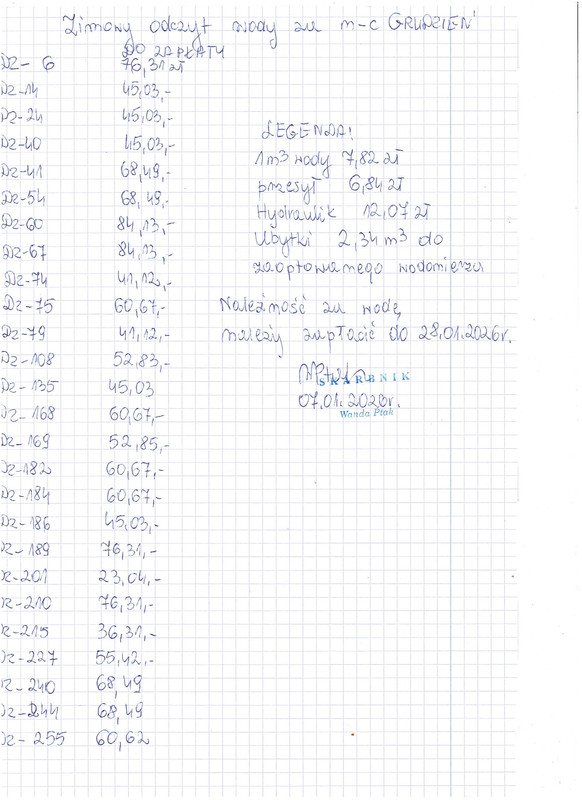 Zimowy odczyt wody za m-c GRUDZIEŃ
DO ZAPŁATY
Dz- 6 76,31 zł
Dz-14 45,03,-
Dz-24 45,03,-
Dz-40 45,03,-
Dz-41 68,49,-
Dz-54 68,49,-
Dz-60 84,13,-
Dz-67 84,13,-
Dz-74 41,12,-
Dz-75 60,67,-
Dz-79 41,12,-
Dz-108 52,83,-
Dz-135 45,03
Dz-168 60,67,-
Dz-169 52,85,-
Dz-182 60,67,-
Dz-184 60,67,-
Dz-186 45,03,-
Dz-189 76,31,-
Dz-201 23,04,-
Dz-210 76,31,-
Dz-215 36,31,-
Dz-227 55,42,-
Dz-240 68,49
Dz-244 68,49
Dz-255 60,62
LEGENDA!
1m3 wody 7,82 zł
przesył 6,84 zł
Hydraulik 12,07 zł
Ubytki 2,34 m3 do
zaoptowanego wodomierza
Należność za wodę
należy zapłacić do 28.01.2026r.
SKARBNIK
07.01.2026r.
Wanda Ptak